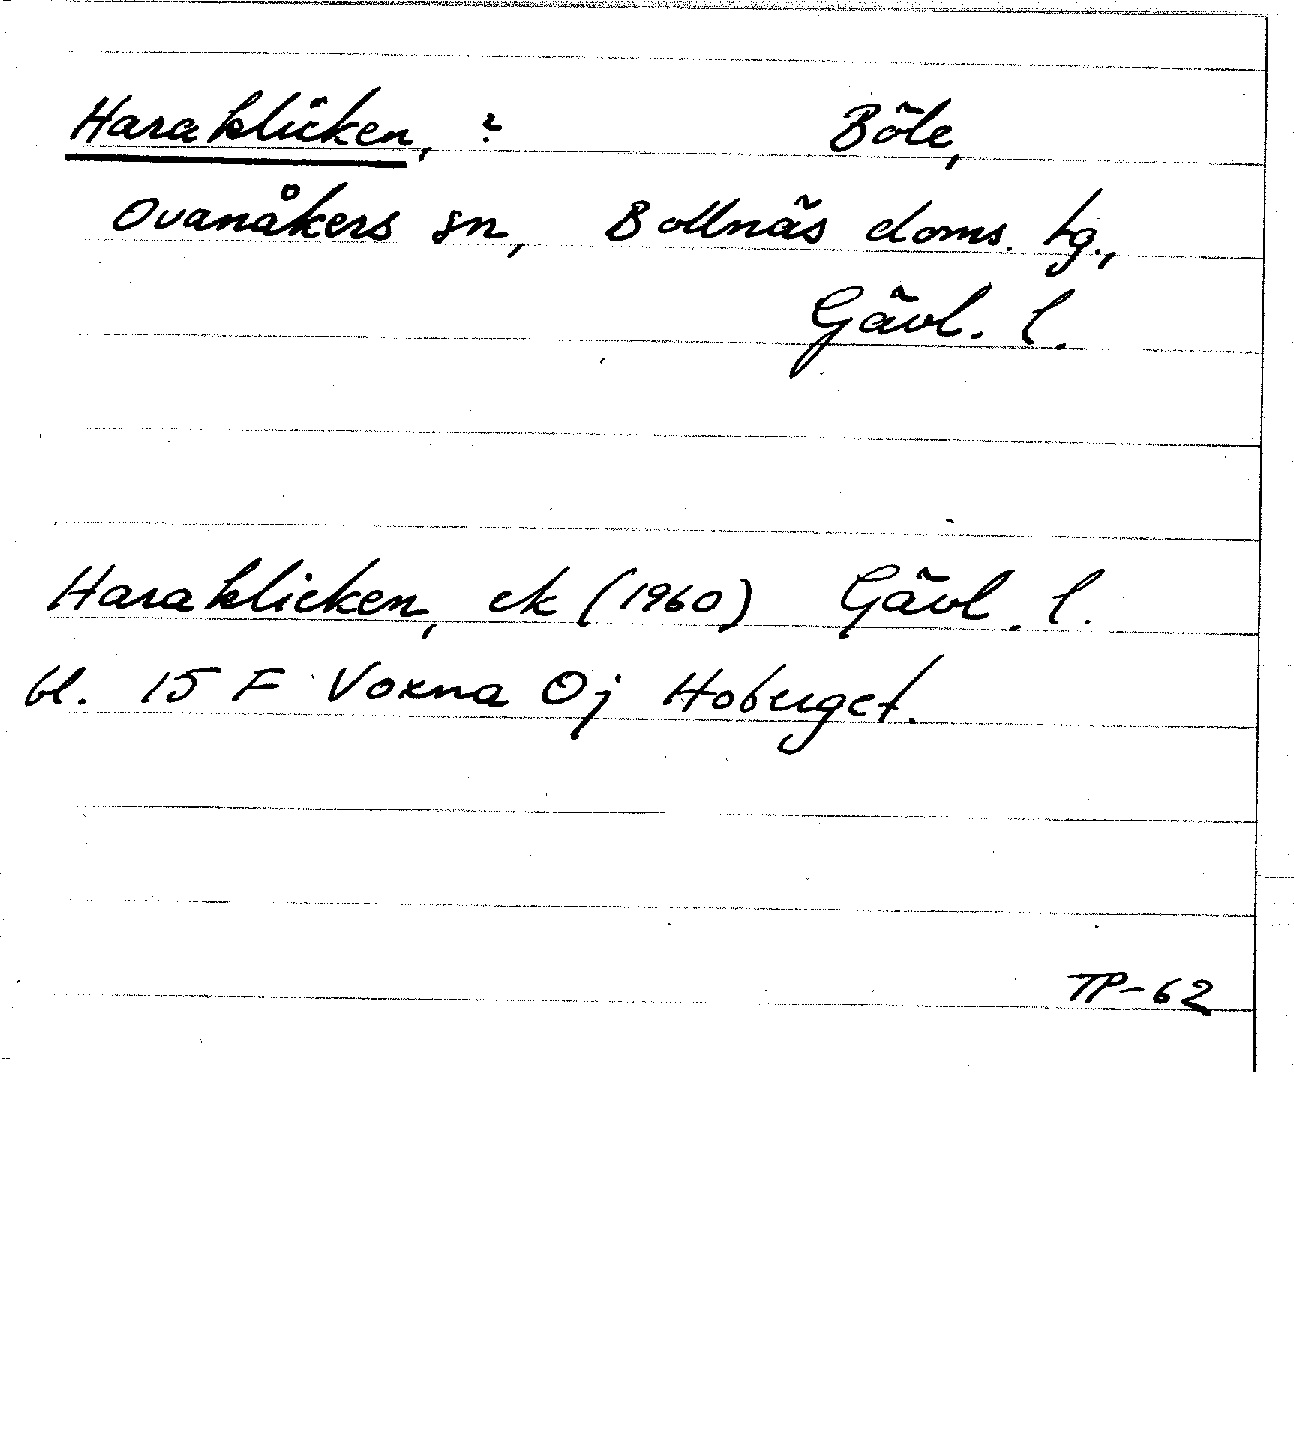 Haraklicken, ? Böle,
Ovanåkers sn, Bollnäs doms. tg.,
Gävl. l.
Haraklicken, ek (1960) Gävl. l.
bl. 15 F Voxna 0j Hoberget.
TP-62